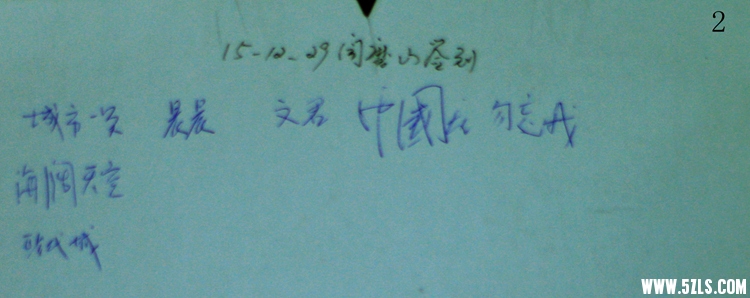 2
15-12-29 阎磨山签到
城市一员 晨晨 文君 中國龙 勿忘我
海阔天空
城
WWW.5ZLS.COM